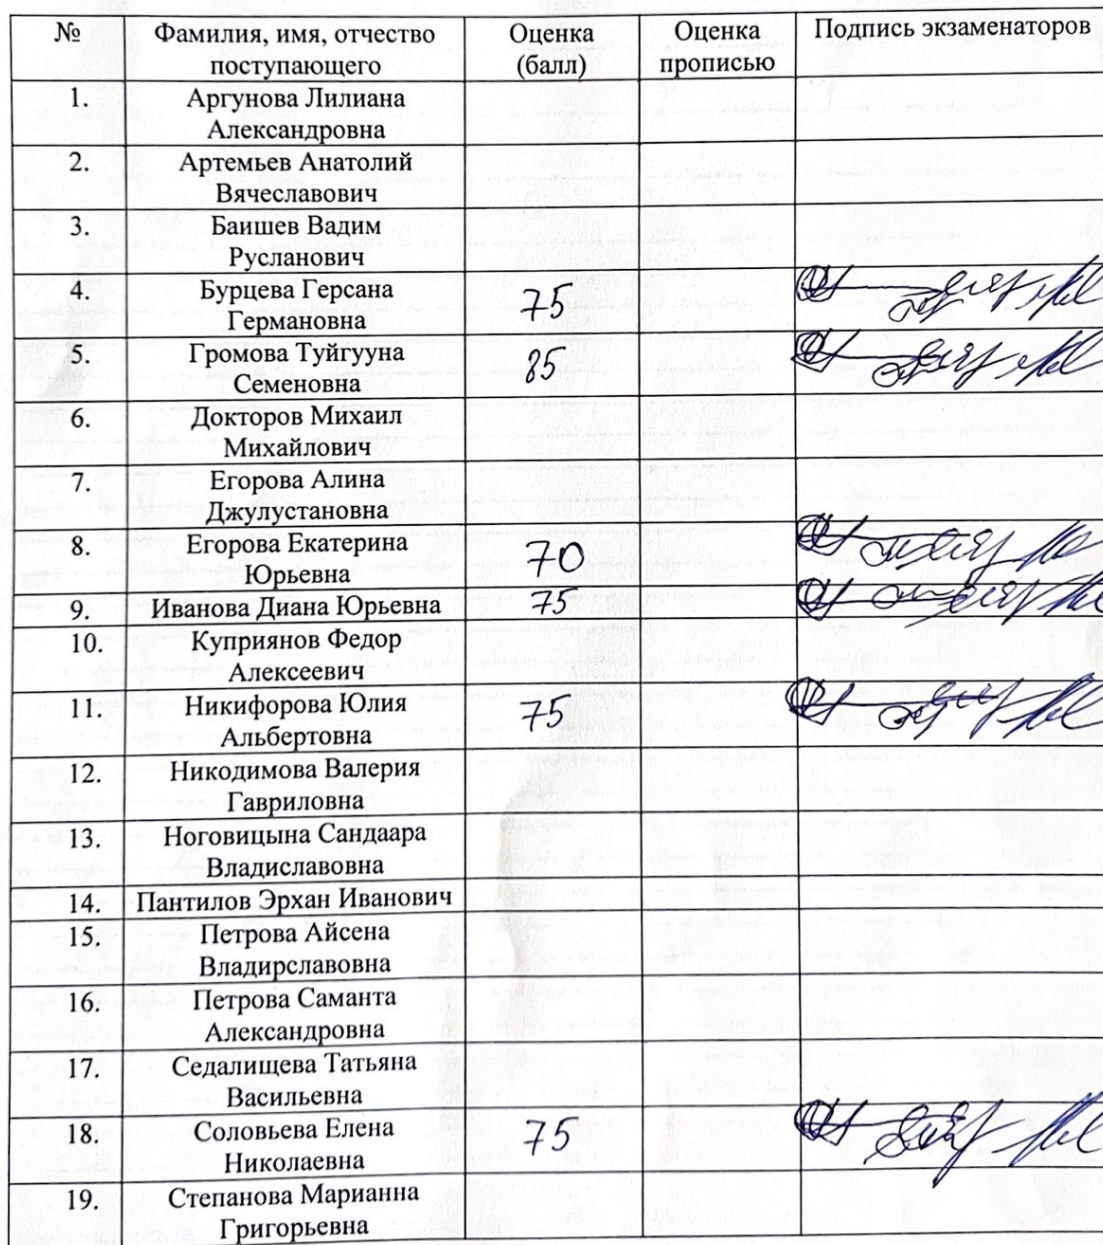 № Фамилия, имя, отчество Оценка Оценка Подпись экзаменаторов
поступающего (балл) прописью
1. Аргунова Лилиана
Александровна
2. Артемьев Анатолий
Вячеславович
3. Баишев Вадим
Русланович
4. Бурцева Герсана 75
Германовна
5. Громова Туйгууна 85
Семеновна
6. Докторов Михаил
Михайлович
7. Егорова Алина
Джулустановна
8. Егорова Екатерина 70
Юрьевна
9. Иванова Диана Юрьевна 75
10. Куприянов Федор
Алексеевич
11. Никифорова Юлия 75
Альбертовна
12. Никодимова Валерия
Гавриловна
13. Ноговицына Сандаара
Владиславовна
14. Пантилов Эрхан Иванович
15. Петрова Айсена
Владирславовна
16. Петрова Саманта
Александровна
17. Седалищева Татьяна
Васильевна
18. Соловьева Елена 75
Николаевна
19. Степанова Марианна
Григорьевна